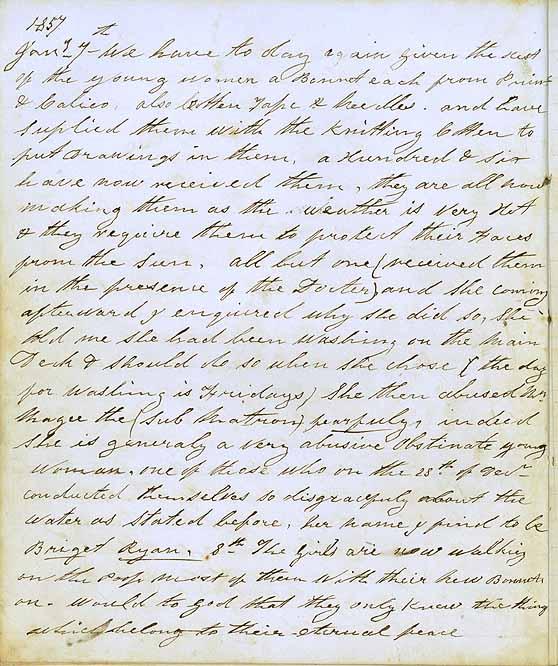 1857
Jany 7th We have to day again given the rest
of the young women a Bonnet each from Print
& Calico, also Cotten Tape & Needles. and have
Suplied them with the Knitting Cotten to
put Drawings in them, a Hundred & Six
have now received them, they are all now
making them as the weather is very Hot
& they require them to protect their Faces
from the Sun, all but one (received them
in the presence of the Docter) and she coming
afterward I enquired why she did so, She
told me she had been washing on the Main
Deck & should do so when she chose (the day
for washing is Fridays) She then abused Mrs
Magee the (Sub Matron) fearfuly, indeed
She is generaly a very abusive Obstinate young
Woman, one of those who on the 28th of Decr
conducted themselves so disgracefuly about the
Water as stated before, her name I find to be
Briget Ryan. 8th The Girls are now walking
on the poop most of them with their New Bonnets
on. Would to God that they only knew the things
which belong to their eternal peace